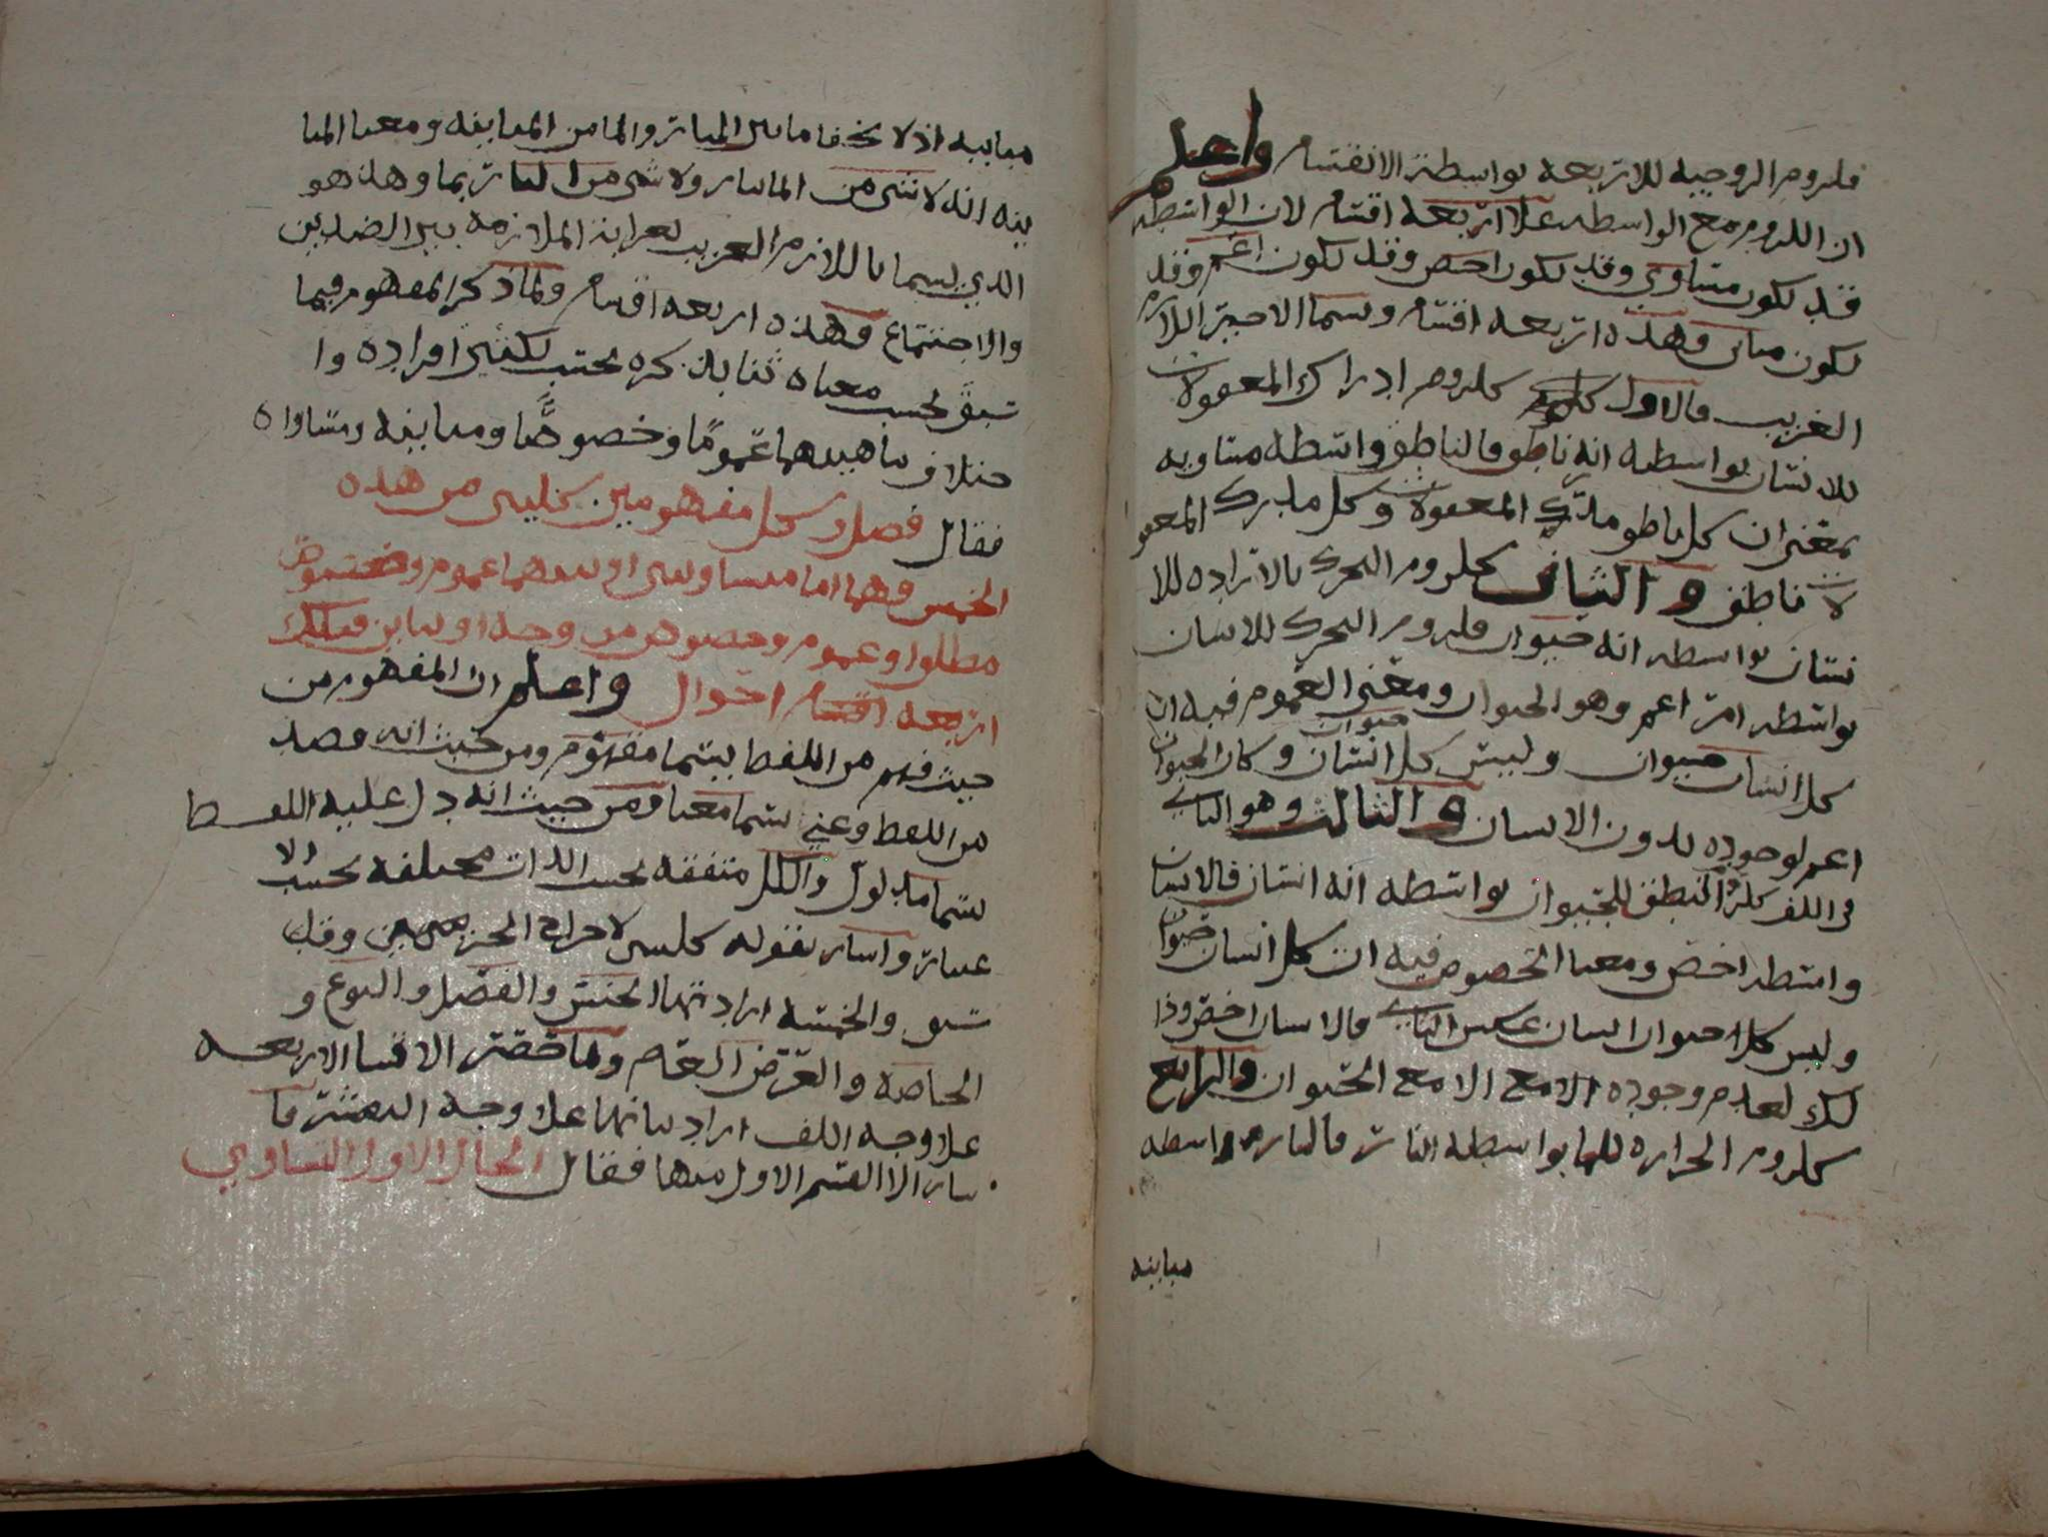 فلزوم الزوجيه للاربعه بواسطة الانقسام واعلم
ان اللزوم مع الواسطه علا اربعه اقسام لان الواسطه
قد تكون مساوي وقد تكون اخص وقد تكون اعم وقد
تكون مباين وهذه اربعه اقسام ويسما الاخير اللازم
الغريب فالاول كلزوم ادراك المعقولات
للانسان بواسطه انه ناطق فالناطق واسطه مساويه
بمعنى ان كل ناطق مدرك المعقولات وكل مدرك المعقو
لات ناطق والثاني كلزوم التحرك بالاراده للا
نسان بواسطه انه حيوان فلزوم التحرك للانسان
بواسطه امر اعم وهو الحيوان ومعنى العموم فيه ان
كل انسان حيوان وليس كل حيوان انسان وكان الحيوان
اعم لوجوده بدون الانسان والثالث وهو الثاني
في اللف كلزوم النطق للحيوان بواسطه انه انسان فالانسان
واسطه اخص ومعنا الخصوص فيه ان كل انسان حيوان
وليس كل حيوان انسان عكس الثاني فالانسان اخص وذا
لك لعدم وجوده الا مع الحيوان والرابع
كلزوم الحراره للما بواسطه النار فالنار واسطه
مباينه
مباينه اذ لا يخفا ما بين النار والما من المباينه ومعنا المبا
ينه انه لا شي من الما بنار ولا شي من النار بما وهذا هو
الذي يسما باللازم الغريب لغرابة الملازمه بين الضدين
والاجتماع وهذه اربعه اقسام ولما ذكر المفهوم فيما
سبق بحسب معناه ثنا بذكره بحسب تكثير افراده وا
ختلاف ماهيتهما عموما وخصوصا ومباينه ومساواه
فقال فصل وكل مفهومين كليين من هذه
الخمس فهما اما متساويين او بينهما عموم وخصوص
مطلقا او عموم وخصوص من وجه او تباين فتلك
اربعه اقسام احوال واعلم ان المفهوم من
حيث فهم من اللفظ يسما مفهوم ومن حيث انه قصد
من اللفظ وعني يسما معنا ومن حيث انه دل عليه اللفظ
يسما مدلول والكل متفقه بحسب الذات مختلفه بحسب الا
عتبار واشار بقوله كليين لاخراج الجزييين وقد
سبق والخمسه اراد بها الجنس والفصل والنوع و
الخاصه والعرض العام ولما حصر الاقسام الاربعه
علا وجه اللف اراد بيانها علا وجه النشر فا
شار الا القسم الاول منها فقال الحال الاول التساوي